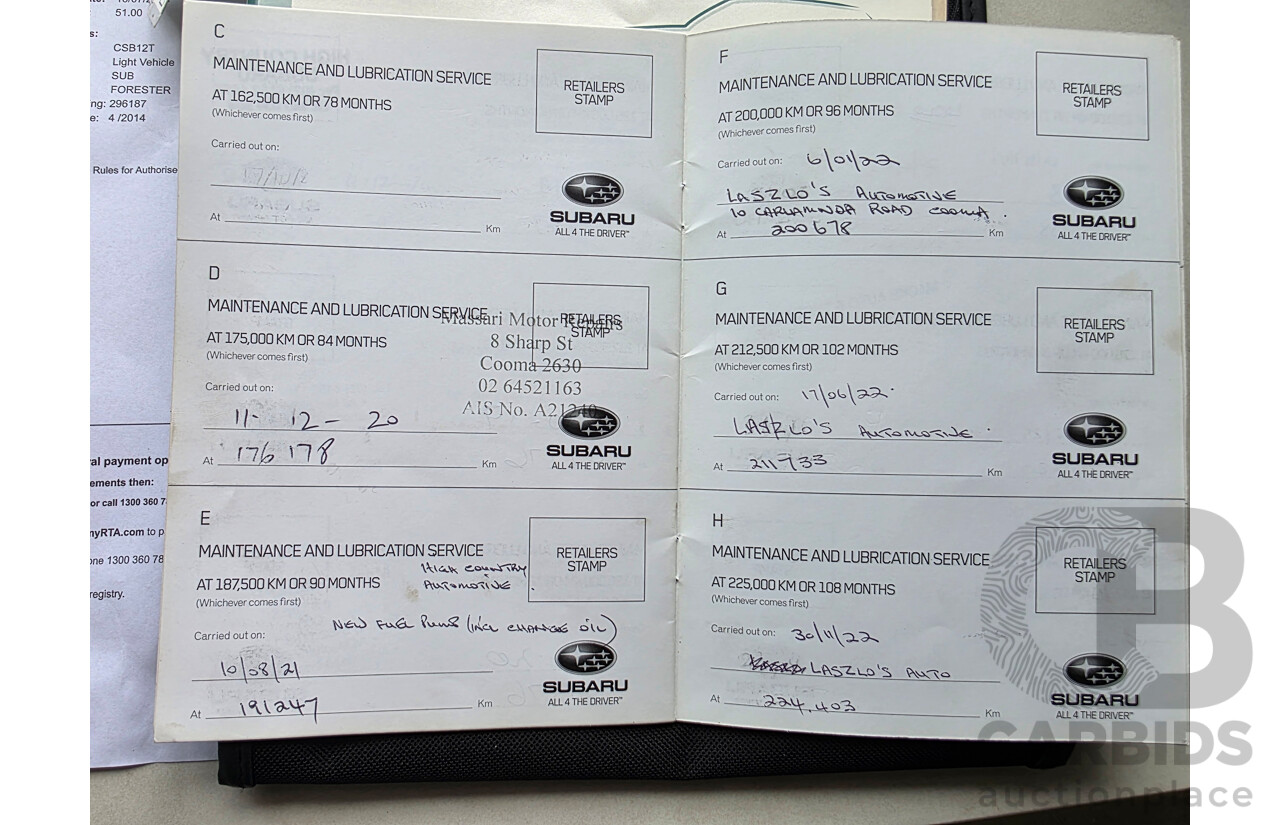 51.00
s:
CSB12T
Light Vehicle
SUB
FORESTER
ng: 296187
e: 4 /2014
Rules for Authorise
ral payment op
ements then:
or call 1300 360 7
nyRTA.com to p
one 1300 360 78
registry.
C
MAINTENANCE AND LUBRICATION SERVICE
AT 162,500 KM OR 78 MONTHS
(Whichever comes first)
RETAILERS
STAMP
Carried out on:
At
Km
SUBARU
ALL 4 THE DRIVER™
D
MAINTENANCE AND LUBRICATION SERVICE
AT 175,000 KM OR 84 MONTHS
(Whichever comes first)
RETAILERS
STAMP
Massari Motor Repairs
8 Sharp St
Cooma 2630
02 64521163
AIS No. A21240
Carried out on:
11- 12 - 20
At 176 178 Km
SUBARU
ALL 4 THE DRIVER™
E
MAINTENANCE AND LUBRICATION SERVICE
AT 187,500 KM OR 90 MONTHS
(Whichever comes first)
RETAILERS
STAMP
HIGH COUNTRY
AUTOMOTIVE.
NEW FUEL PUMP (INCL CHANGE OIL)
Carried out on:
10/08/21
At 191247 Km
SUBARU
ALL 4 THE DRIVER™
F
MAINTENANCE AND LUBRICATION SERVICE
AT 200,000 KM OR 96 MONTHS
(Whichever comes first)
RETAILERS
STAMP
Carried out on: 6/01/22
LASZLO'S AUTOMOTIVE
10 ROAD COOMA.
At 200678 Km
SUBARU
ALL 4 THE DRIVER™
G
MAINTENANCE AND LUBRICATION SERVICE
AT 212,500 KM OR 102 MONTHS
(Whichever comes first)
RETAILERS
STAMP
Carried out on: 17/06/22.
LASZLO'S AUTOMOTIVE.
At 211733 Km
SUBARU
ALL 4 THE DRIVER™
H
MAINTENANCE AND LUBRICATION SERVICE
AT 225,000 KM OR 108 MONTHS
(Whichever comes first)
RETAILERS
STAMP
Carried out on: 30/11/22
LASZLO'S AUTO
At 224,403 Km
SUBARU
ALL 4 THE DRIVER™
CARBIDS
auctionplace